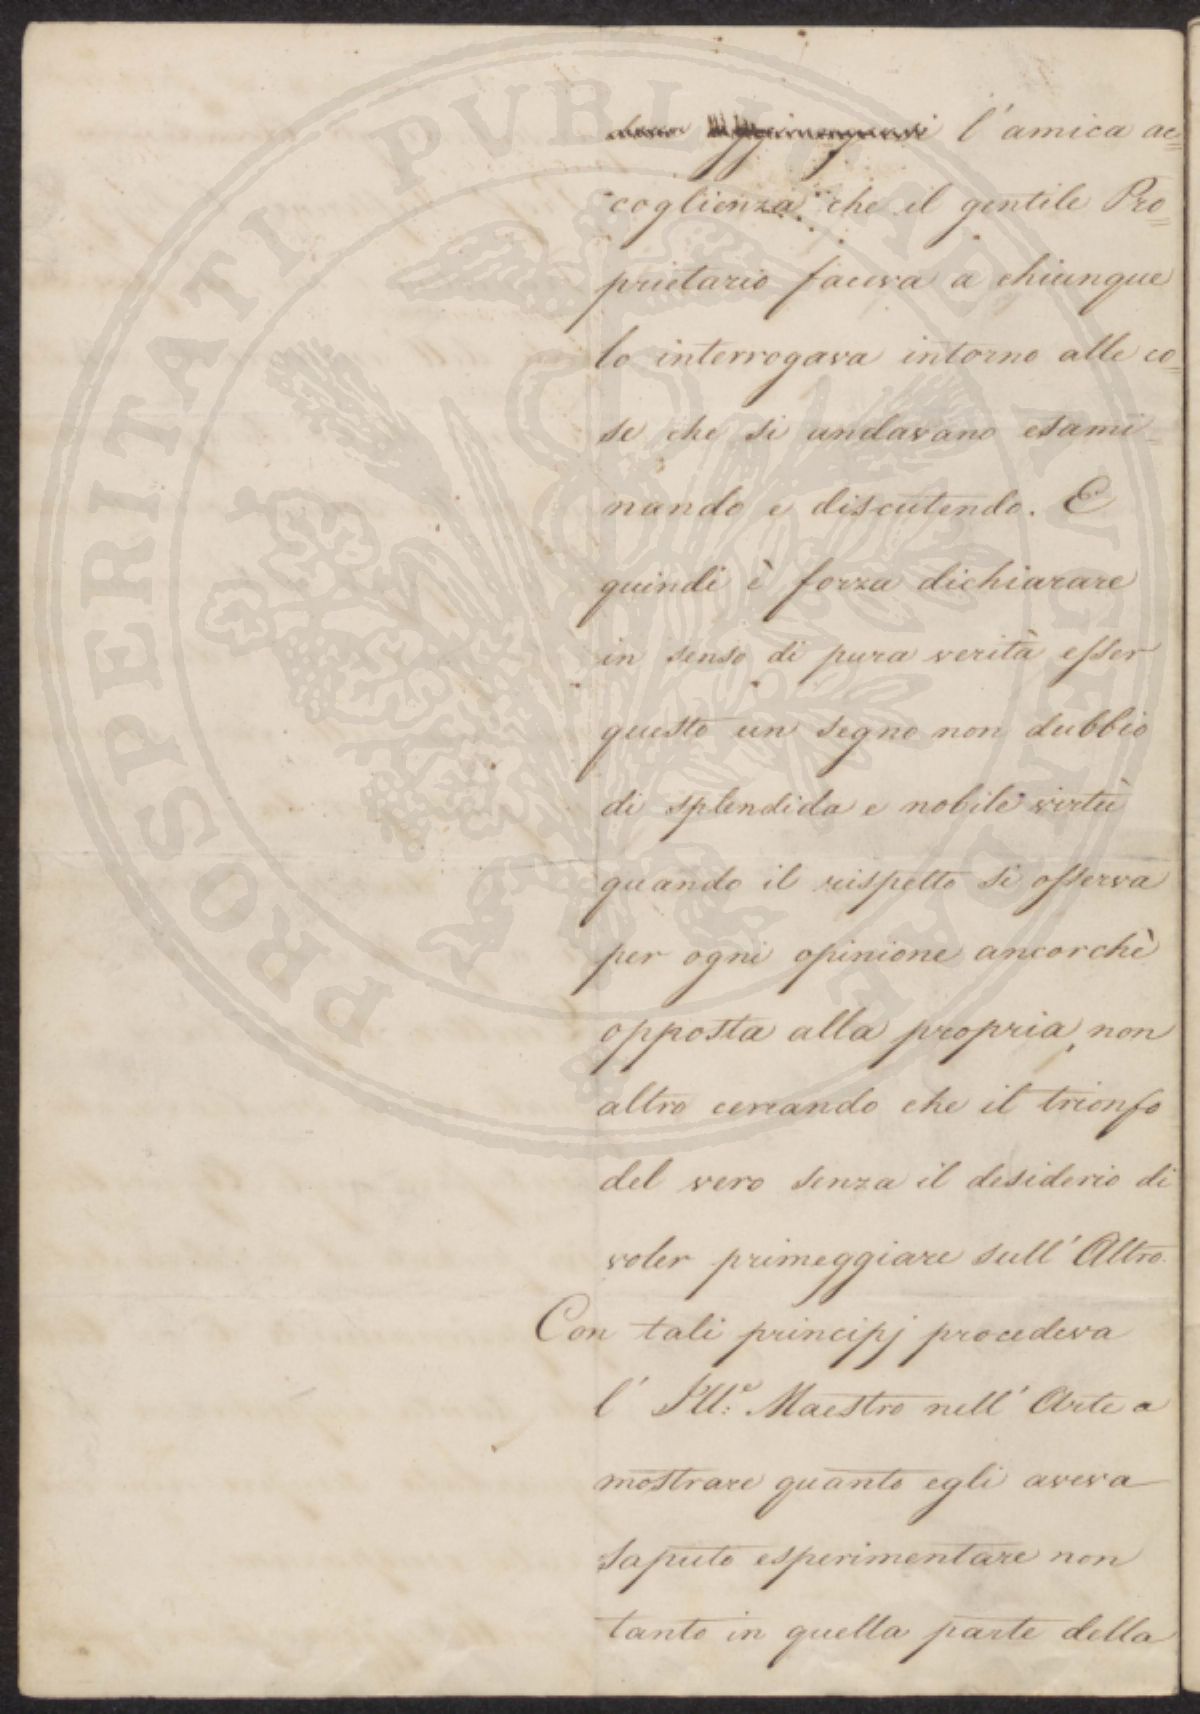 l'amica ac=
coglienza che il gentile Pro=
prietario faceva a chiunque
lo interrogava intorno alle co=
se che si andavano esami=
nando e discutendo. E
quindi è forza dichiarare
in senso di pura verità esser
questo un segno non dubbio
di splendida e nobile virtù
quando il rispetto si osserva
per ogni opinione ancorchè
opposta alla propria, non
altro cercando che il trionfo
del vero senza il desiderio di
voler primeggiare sull'Altro.
Con tali principj procedeva
l'Ill:º Maestro nell'Arte a
mostrare quanto egli aveva
saputo esperimentare non
tanto in quella parte della
PROSPERITATI PUBLICAE AUGENDAE